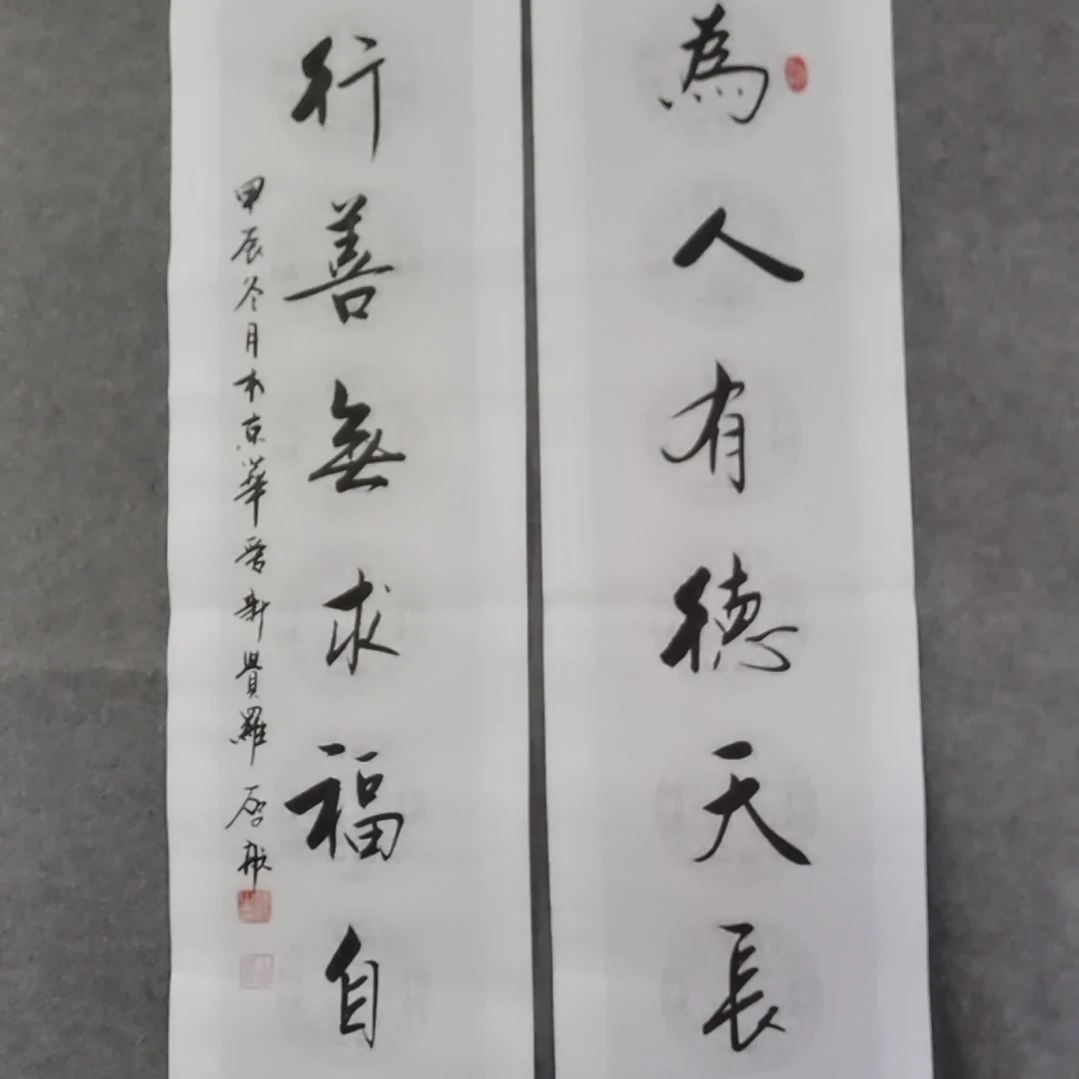 為人有德天長
行善無求福自
甲辰冬月於京華愛新覺羅啟